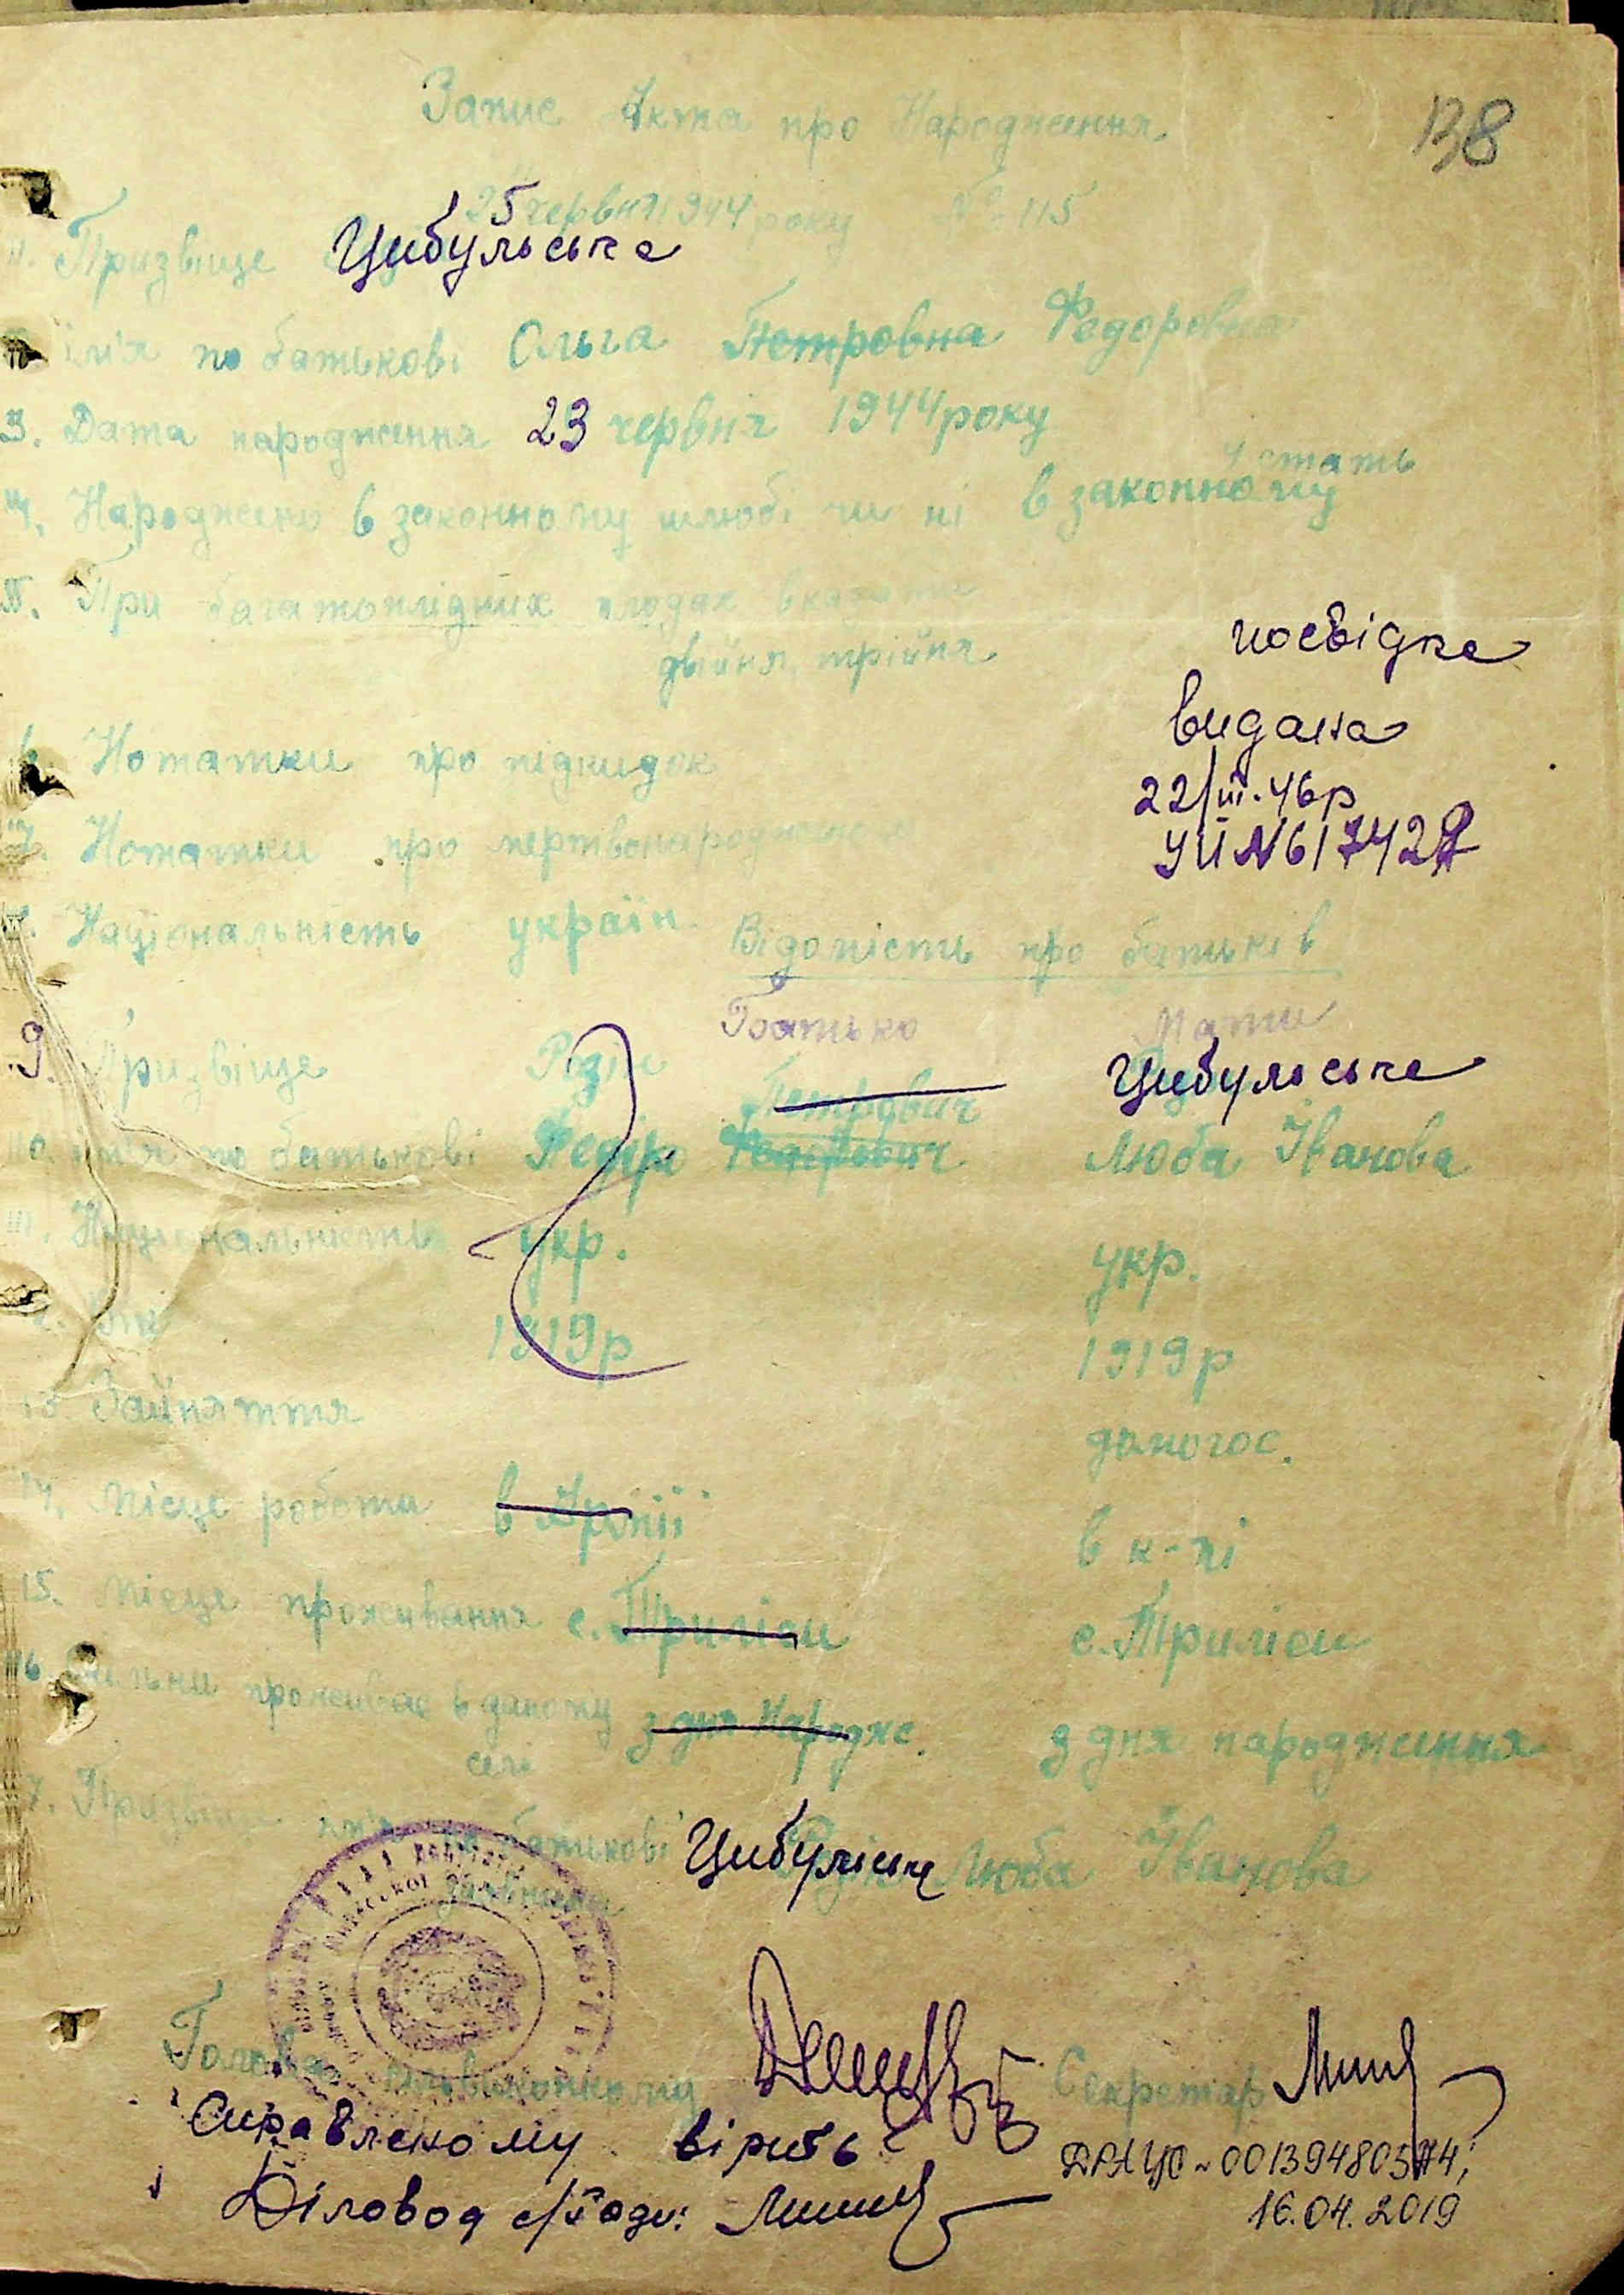 138
Запис Акта про Народження
25 червня 1944 року № 115
Призвіще Цибульська
імʼя по батькові Ольга Петровна Федоровна
3. Дата народження 23 червня 1944 року
стать
4. Народжено в законному шлюбі чи ні в законному
5. При багатоплідних плодах вказати
двійня, трійня
посвідка
видана
22/III.46р
6. Нотатки про підкидок
7. Нотатки про мертвонародженого
8. Національність україн.
Відомість про батьків
Батько Мати
9. Призвіще Цибульська
Петрович
10. імʼя по батькові Федір Федорович Люба Іванова
11. Національність укр. укр.
12. Вік 1919р 1919р
13. Зайняття домогос.
14. Місце роботи в Армії в к-пі
15. Місце проживання с. Триліси с. Триліси
16. Скільки проживає в даному з дня Народже. з дня народження
селі
17. Призвіще імʼя по батькові Люба Іванова
заявника
Голова сільвиконкому Секретар
Справленому вірить
Діловод с/ради:
16.04.2019